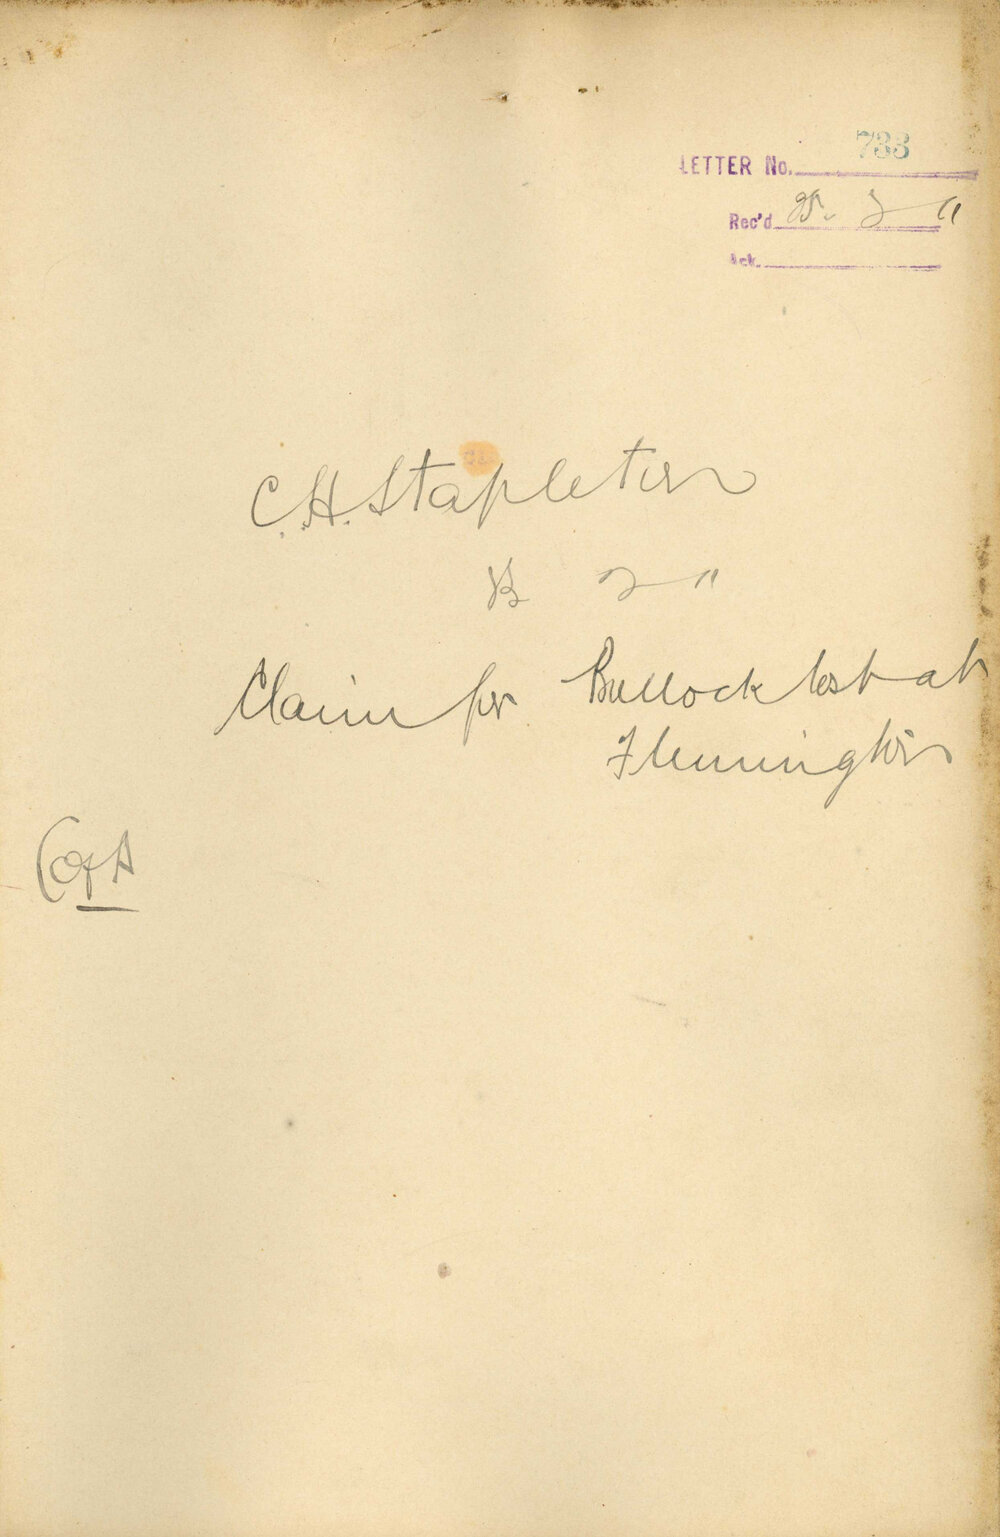 LETTER No. 733
Rec'd 25. 2 11
Ack.
C. H. Stapleton
2 11
Claim for Bullock lost at
Flemington